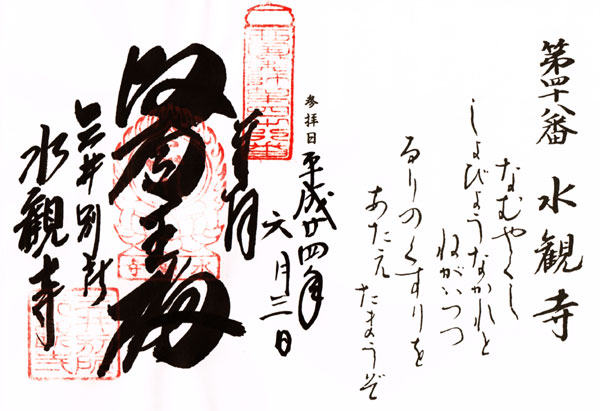 第四十八番 水観寺
なむやくし
しょびょうなかれと
ねがいつつ
るりのくすりを
あたえ たまうぞ
参拝日 平成廿四年
六月三日
奉拝
三井別所
水観寺